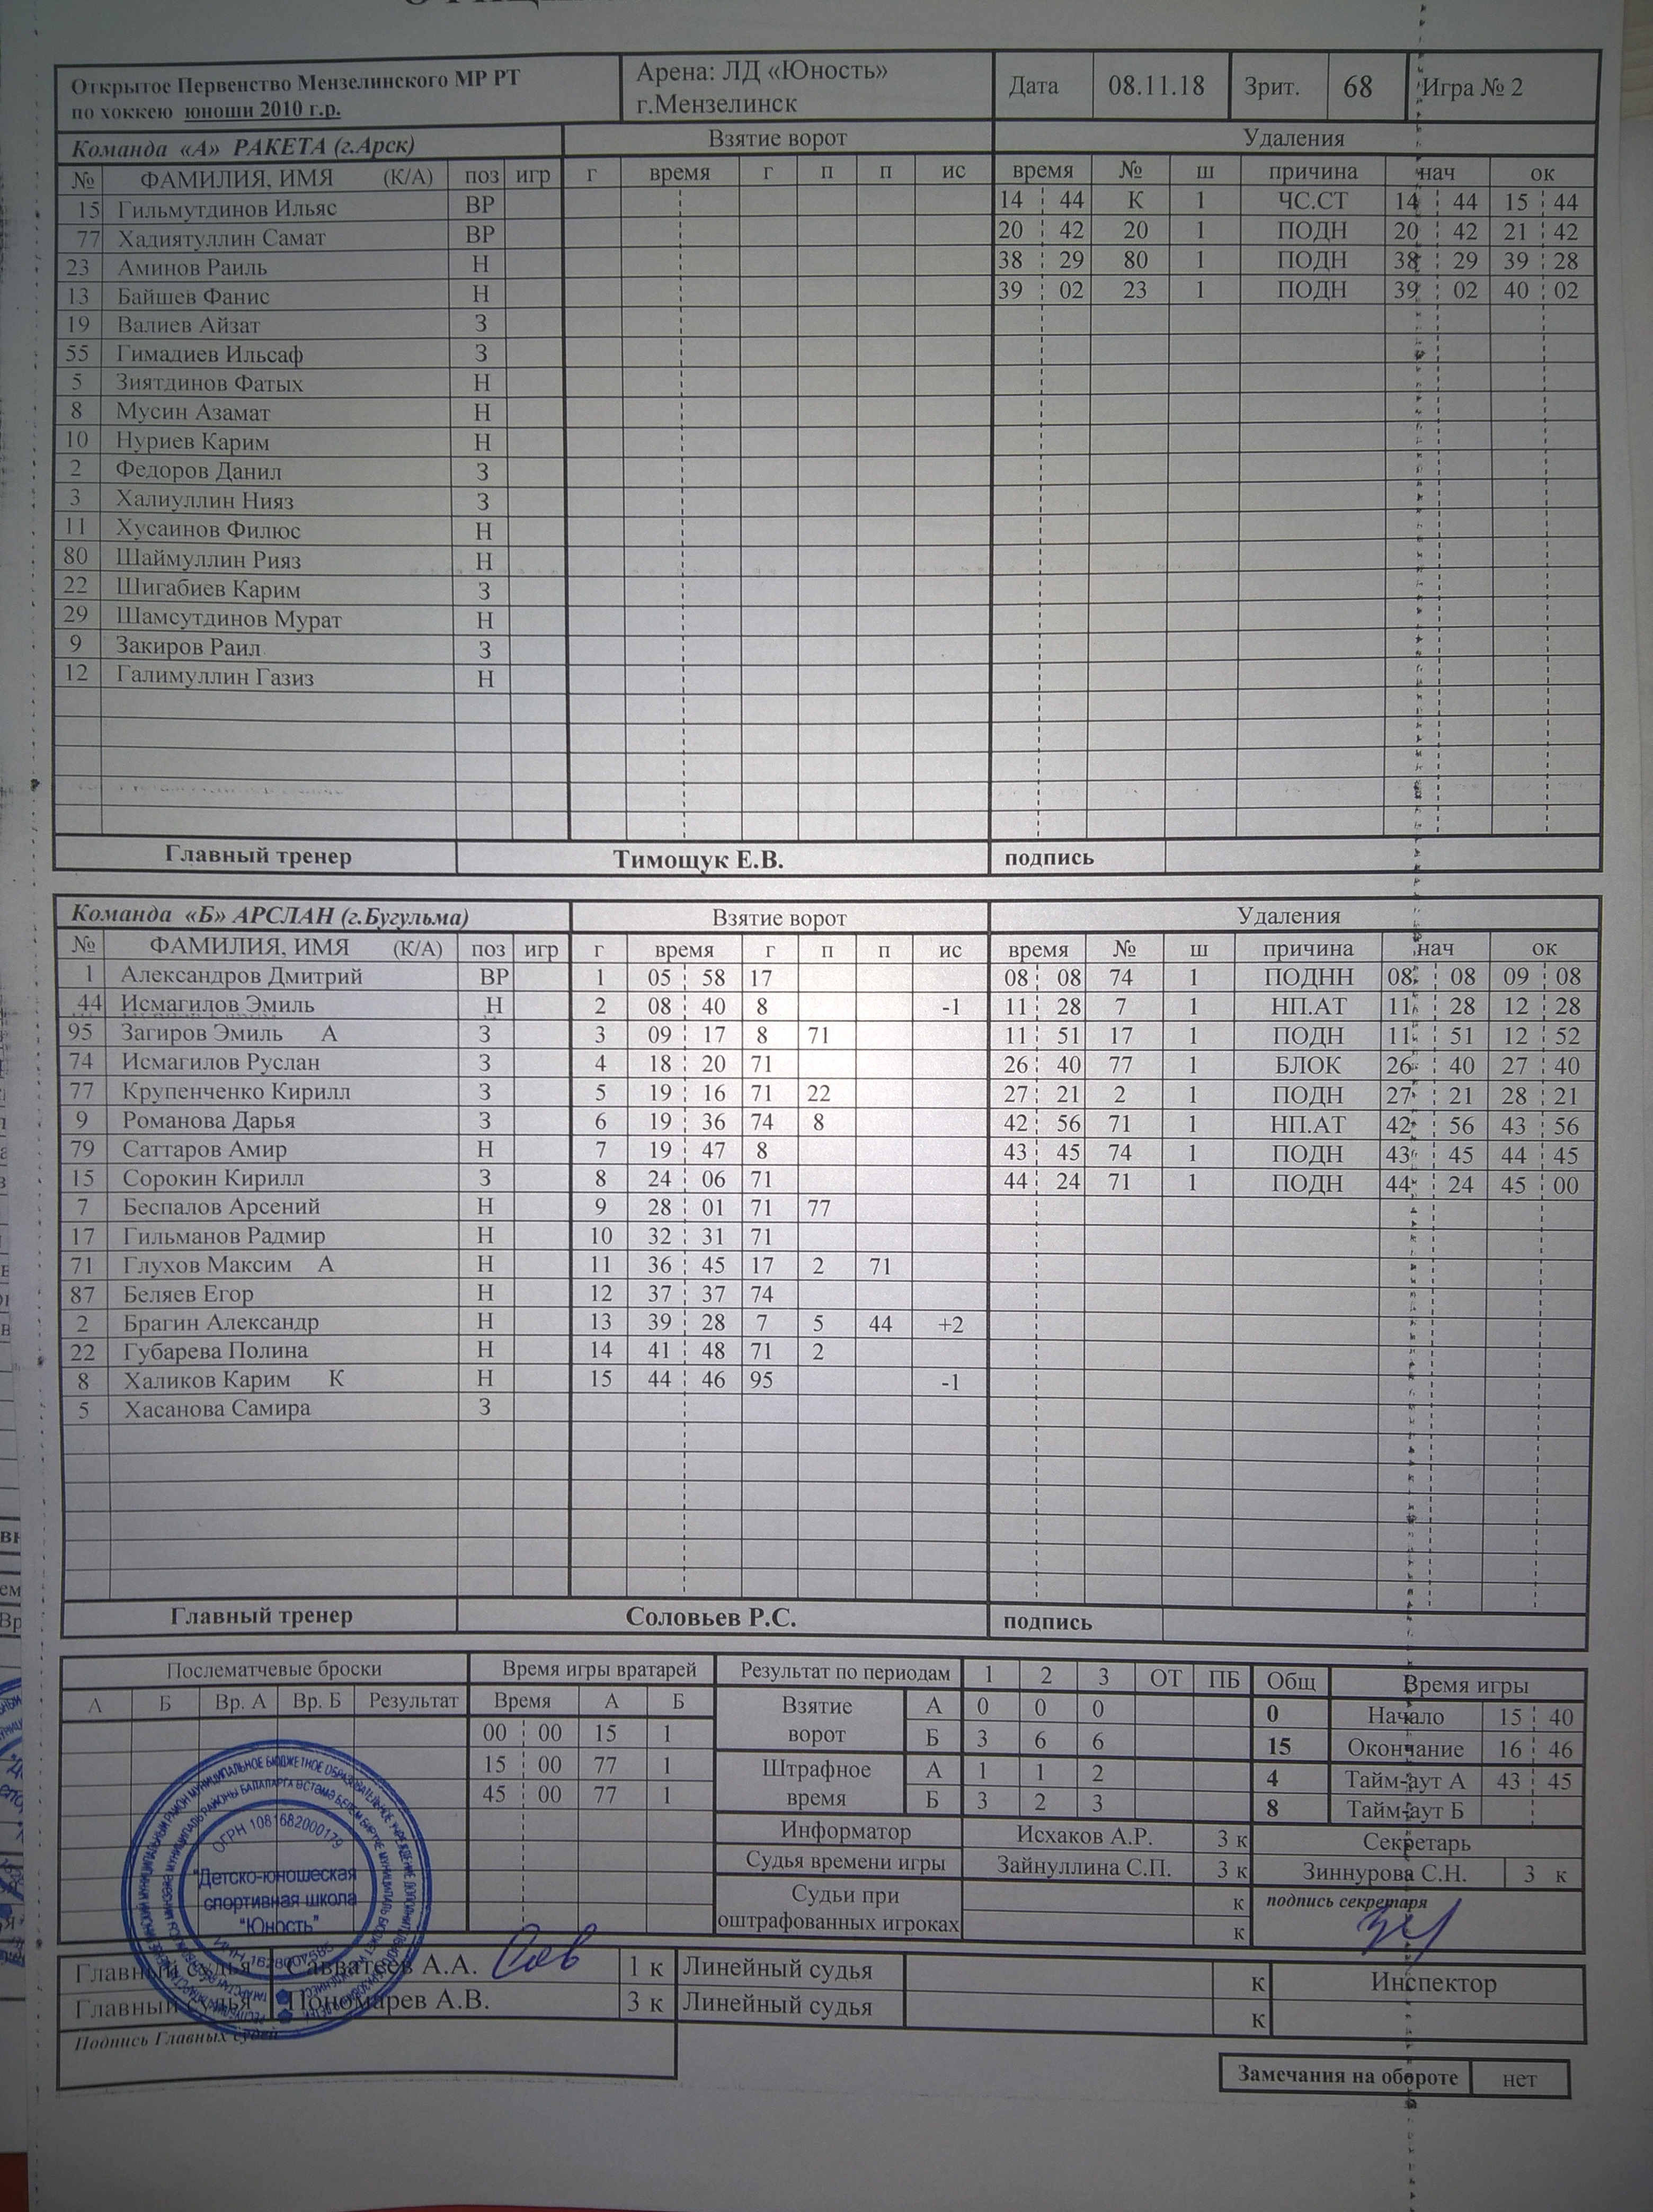 Открытое Первенство Мензелинского МР РТ
по хоккею юноши 2010 г.р.
Арена: ЛД «Юность»
г.Мензелинск
Дата 08.11.18 Зрит. 68 Игра № 2
Команда «А» РАКЕТА (г.Арск) Взятие ворот Удаления
№ ФАМИЛИЯ, ИМЯ (К/А) поз игр г время г п п ис время № ш причина нач ок
15 Гильмутдинов Ильяс ВР 14 44 К 1 ЧС.СТ 14 44 15 44
77 Хадиятуллин Самат ВР 20 42 20 1 ПОДН 20 42 21 42
23 Аминов Раиль Н 38 29 80 1 ПОДН 38 29 39 28
13 Байшев Фанис Н 39 02 23 1 ПОДН 39 02 40 02
19 Валиев Айзат З
55 Гимадиев Ильсаф З
5 Зиятдинов Фатых Н
8 Мусин Азамат Н
10 Нуриев Карим Н
2 Федоров Данил З
3 Халиуллин Нияз З
11 Хусаинов Филюс Н
80 Шаймуллин Рияз Н
22 Шигабиев Карим З
29 Шамсутдинов Мурат Н
9 Закиров Раил З
12 Галимуллин Газиз Н
Главный тренер Тимощук Е.В. подпись
Команда «Б» АРСЛАН (г.Бугульма) Взятие ворот Удаления
№ ФАМИЛИЯ, ИМЯ (К/А) поз игр г время г п п ис время № ш причина нач ок
1 Александров Дмитрий ВР 1 05 58 17 08 08 74 1 ПОДНН 08 08 09 08
44 Исмагилов Эмиль Н 2 08 40 8 -1 11 28 7 1 НП.АТ 11 28 12 28
95 Загиров Эмиль А З 3 09 17 8 71 11 51 17 1 ПОДН 11 51 12 52
74 Исмагилов Руслан З 4 18 20 71 26 40 77 1 БЛОК 26 40 27 40
77 Крупенченко Кирилл З 5 19 16 71 22 27 21 2 1 ПОДН 27 21 28 21
9 Романова Дарья З 6 19 36 74 8 42 56 71 1 НП.АТ 42 56 43 56
79 Саттаров Амир Н 7 19 47 8 43 45 74 1 ПОДН 43 45 44 45
15 Сорокин Кирилл З 8 24 06 71 44 24 71 1 ПОДН 44 24 45 00
7 Беспалов Арсений Н 9 28 01 71 77
17 Гильманов Радмир Н 10 32 31 71
71 Глухов Максим А Н 11 36 45 17 2 71
87 Беляев Егор Н 12 37 37 74
2 Брагин Александр Н 13 39 28 7 5 44 +2
22 Губарева Полина Н 14 41 48 71 2
8 Халиков Карим К Н 15 44 46 95 -1
5 Хасанова Самира З
Главный тренер Соловьев Р.С. подпись
Послематчевые броски Время игры вратарей Результат по периодам 1 2 3 ОТ ПБ Общ Время игры
А Б Вр. А Вр. Б Результат Время А Б Взятие ворот А 0 0 0 0 Начало 15 40
00 00 15 1 Б 3 6 6 15 Окончание 16 46
15 00 77 1 Штрафное время А 1 1 2 4 Тайм-аут А 43 45
45 00 77 1 Б 3 2 3 8 Тайм-аут Б
Информатор Исхаков А.Р. 3 к Секретарь
Судья времени игры Зайнуллина С.П. 3 к Зиннурова С.Н. 3 к
Судьи при к подпись секретаря
оштрафованных игроках к
ОГРН 1081682000179
"Детско-юношеская
спортивная школа
"Юность"
Главный судья Савватеев А.А. 1 к Линейный судья к Инспектор
Главный судья Пономарев А.В. 3 к Линейный судья к
Подпись Главных судей
Замечания на обороте нет